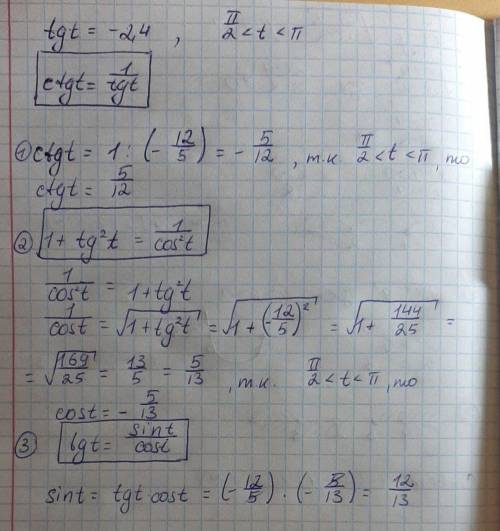 tgt = -2,4 , π/2 < t < π
ctgt = 1/tgt
① ctgt = 1 : (-12/5) = -5/12 , т.к π/2 < t < π, то
ctgt = 5/12
② 1 + tg²t = 1/cos²t
1/cos²t = 1 + tg²t
1/cost = √(1 + tg²t) = √(1 + (-12/5)²) = √(1 + 144/25) =
= √(169/25) = 13/5 = 5/13 , т.к. π/2 < t < π, то
cost = -5/13
③ tgt = sint/cost
sint = tgt·cost = (-12/5) · (-5/13) = 12/13